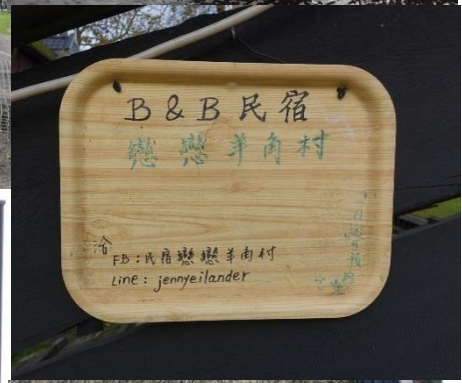 B & B 民宿
戀戀羊角村
洽
FB：民宿戀戀羊角村
Line : jennyeilander